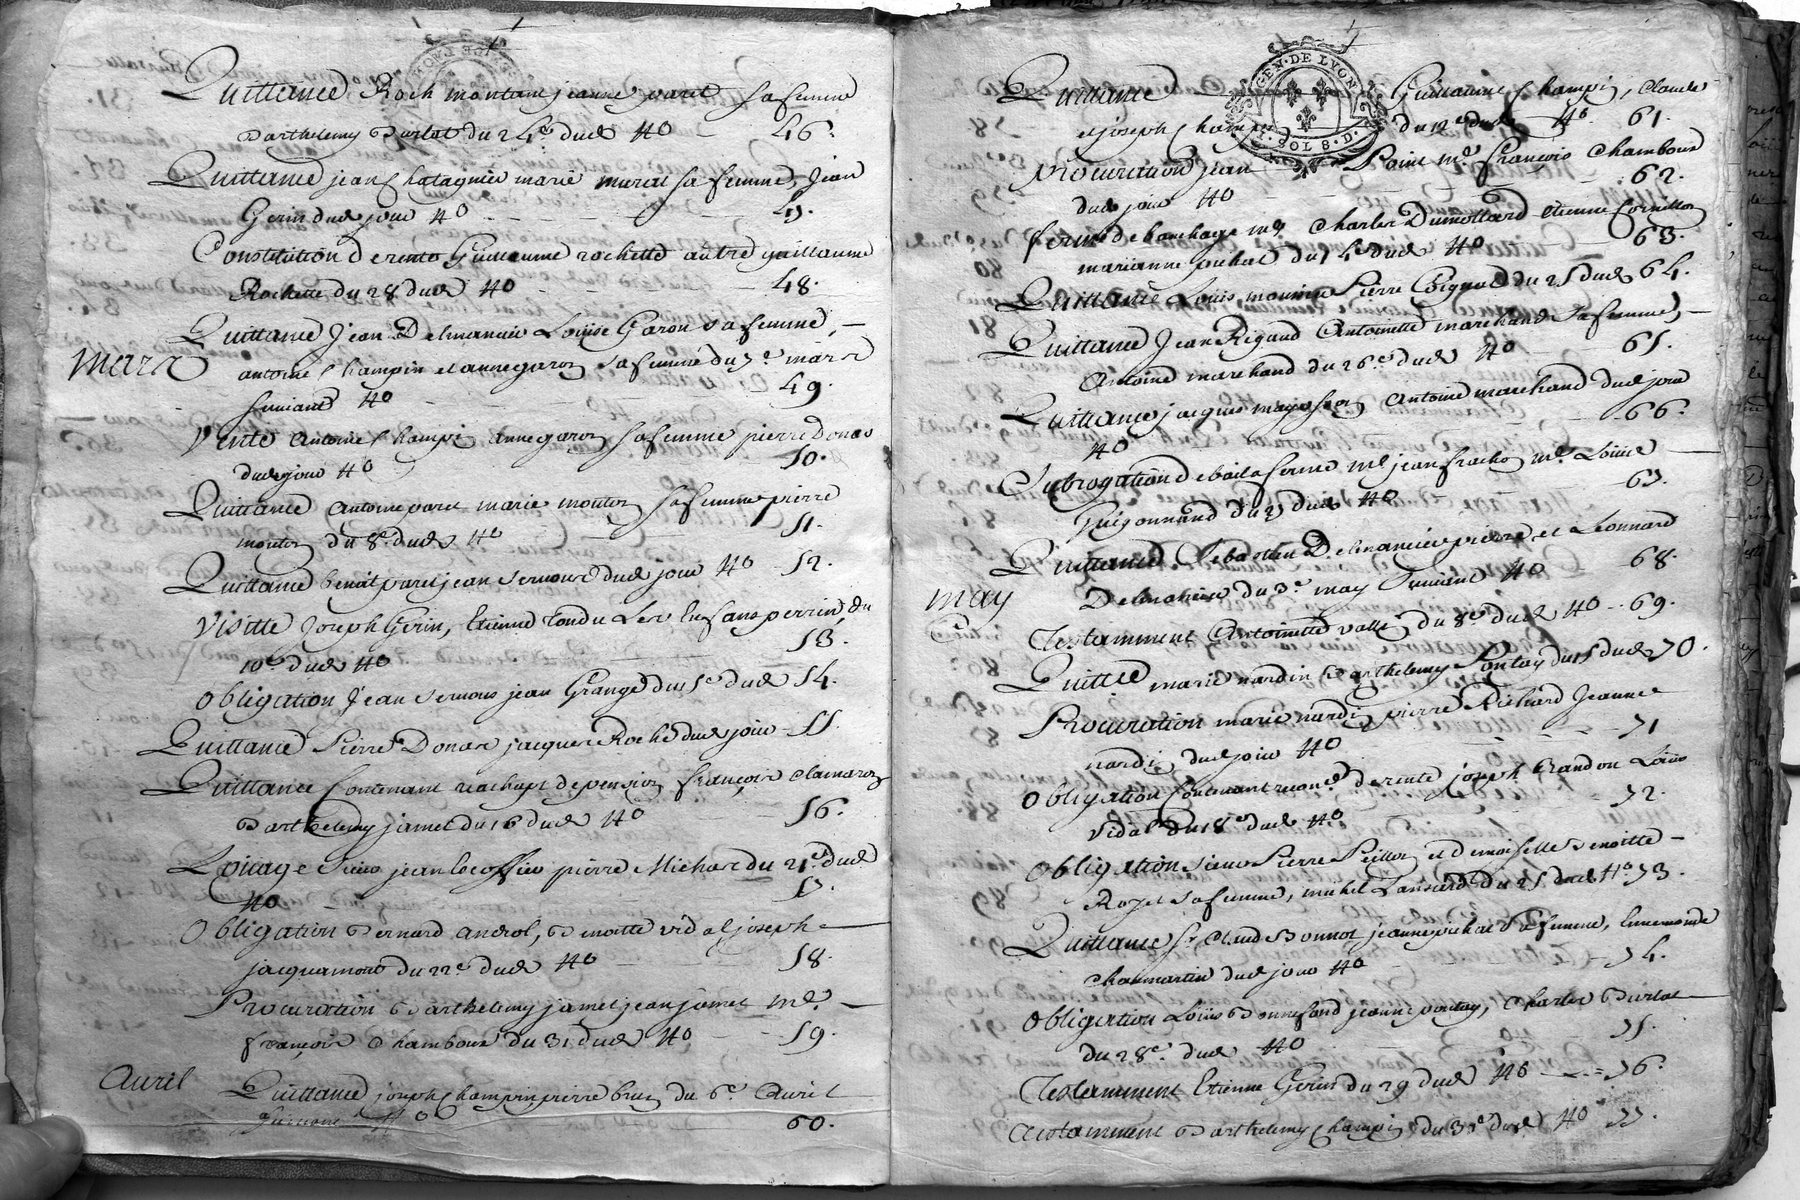 Quittance Roch montant jeanne paret sa femme
Barthelemy Burlat du 24e dud No 46.
Quittance jean Chatagnier marie murat sa femme, Jean
Gerin dud jour No 47.
Constitution de rente Guillaume rochette autre guillaume
Rochette du 28 dud No 48.
Quittance Jean Delmanier Louise Garon sa femme,
mars
antoine Champin et anne garon sa femme du 7e mars
suivant No 49.
Vente antoine Champin anne garon sa femme pierre Donas
dud jour No 50.
Quittance antoine paret marie mouton sa femme pierre
mouton du 8e dud No 51.
Quittance benoit paret jean servous dud jour No 52.
Visitte Joseph Gerin, Etienne Tondu Les Enfans perrin, du
10e dud No 53.
Obligation Jean servous jean Grange du 15e dud 54.
Quittance Pierre Donas jacques Roche dud jour 55.
Quittance Contenant rachapt de pension françois clamaron
Barthelemy jamet du 16 dud No 56.
Louage Sieur jean pierre Michas du 21e dud
No 57.
Obligation Bernard androl, Benoitte vidal joseph
jacquemond du 22e dud No 58.
Procuration Barthelemy jamet jean jamet me
françois Chambous du 31 dud No 59
Avril
Quittance joseph Champin pierre brun du 6e Avril
suivant No 60.
Quittance Guillaume Champin, Claude
et joseph Champin du 12e dud No 61.
GEN. DE LYON
SOLS. D.
Procuration jean Point me françois Chambous
dud jour No 62.
ferme de bauchage me Charles Dumollard etienne Cornillon
marianne pichat du 14e dud No 63.
Quittance Louis mounier Pierre Coignet du 25 dud 64.
Quittance Jean Rigaud Antoinette marchand sa femme,
Antoine marchand du 26e dud No 65.
Quittance jacques Antoine marchand dud jour
No 66.
Subrogation de bail a ferme me jean me Loüise
Guigonnand du 27 dud No 67.
Quittance Sebastien Delmanier pierre et Leonnard
may
Delmanier du 3e may suivant No 68.
Testamment Antoinette du 8e dud No 69.
Quittce marie nardin Barthelemy Pontay du 15 dud 70.
Procuration marie nardin pierre Richard Jeanne
nardin dud jour No 71
Obligation Contenant de rente joseph Brandon Loüis
vidal du 18e dud No 72.
Obligation sieur Pierre Peillon et demoiselle Benoitte
Rozet sa femme, michel Lansard du 25 dud No 73.
Quittance Sr Claud Bonnot jeanne pichat sa femme, Ennemonde
Charmartin dud jour No 74.
Obligation Loüis Bonnefond jeanne pontay, Charles Burlat
du 28e dud No 75.
Testamment Etienne Gerin du 29 dud No 76.
Testamment Barthelemy Champin du 31e dud No 77.